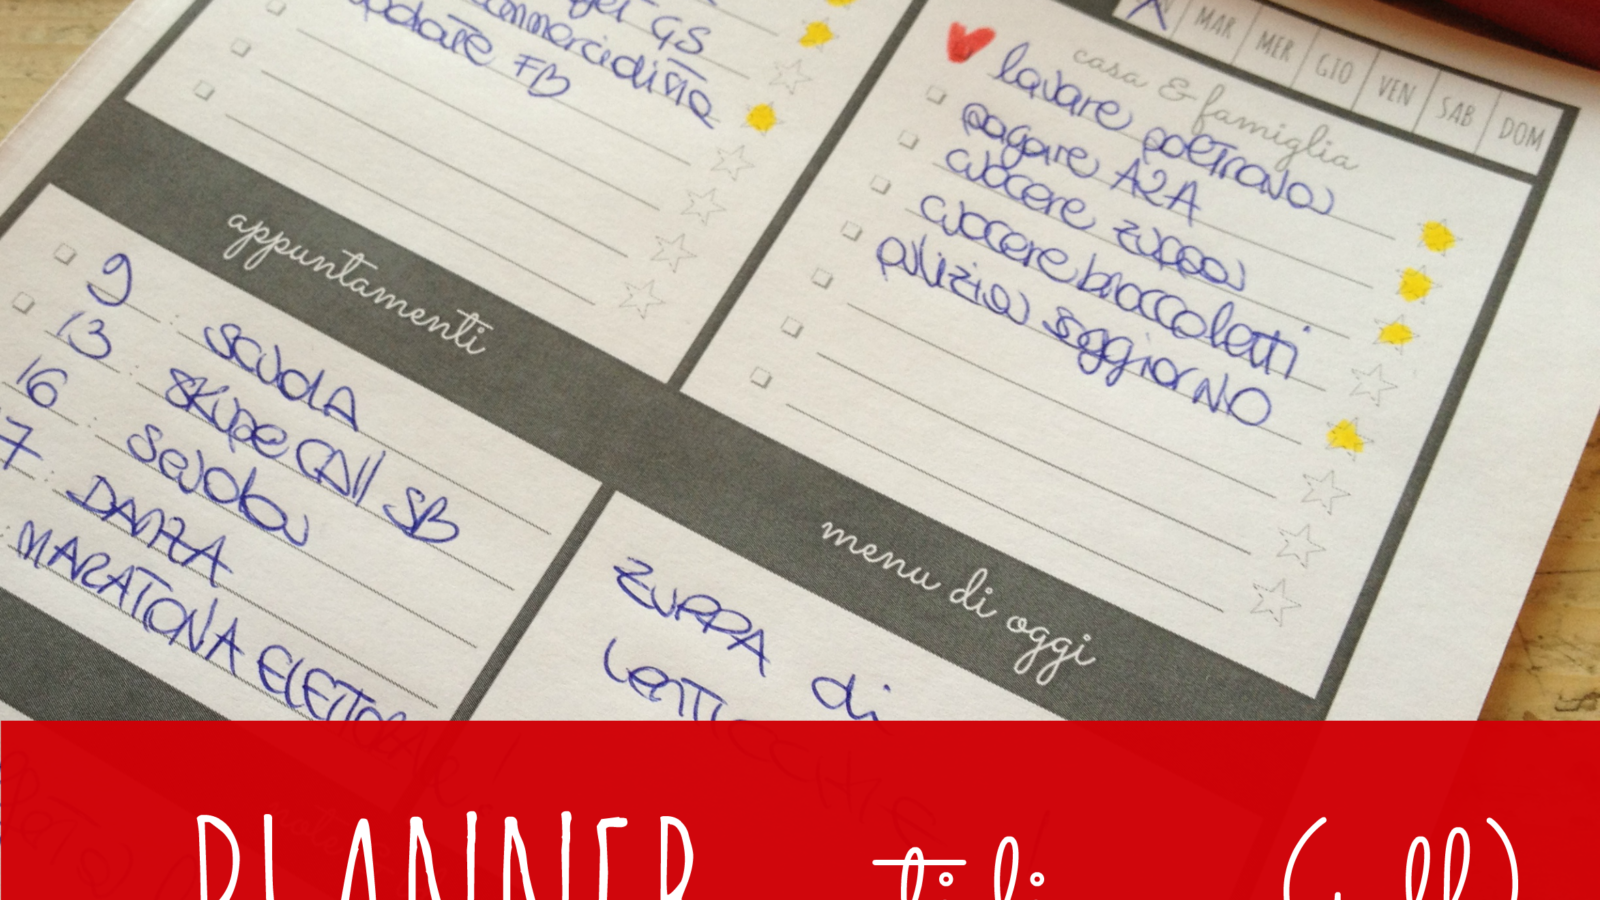 GS
commercialista
update FB
MAR MER GIO VEN SAB DOM
casa & famiglia
lavare poltrona
pagare A2A
cuocere zuppa
cuocere broccoletti
pulizia soggiorno
appuntamenti
9 : scuola
13 : SKYPE CALL SB
16 : scuola
17 : DANZA
: MARATONA ELETTORALE
menu di oggi
ZUPPA di
LENTICCHIE!
PLANNER